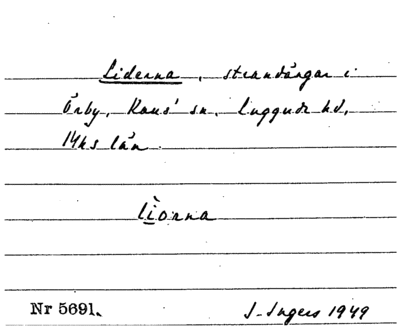 Liderna, strandängar i
Örby, Kaus' sn. Luggude hd,
Mhs län.
lìorna
Nr 5691.
I. Ingers 1949